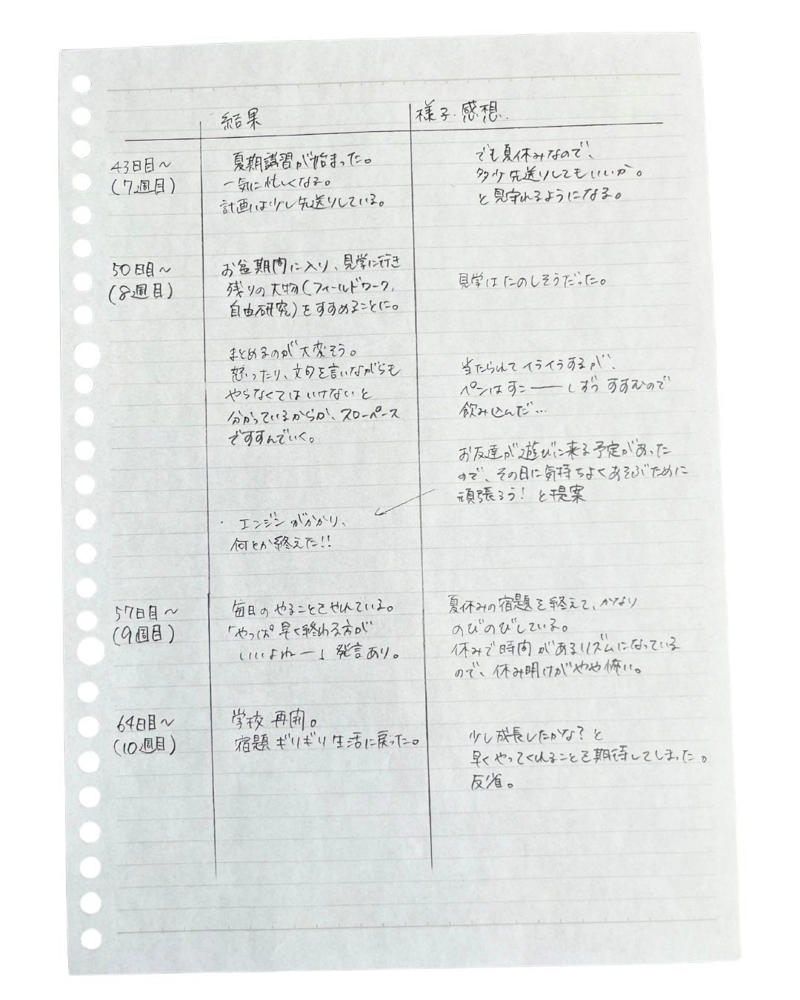 結果
様子・感想
43日目〜
(7週目)
夏期講習が始まった。
一気に忙しくなる。
計画は少し先送りしている。
でも夏休みなので、
多少先送りしてもいいか。
と見守れるようになる。
50日目〜
(8週目)
お盆期間に入り、見学に行き
残りの大物(フィールドワーク,
自由研究)をすすめることに。
見学はたのしそうだった。
まとめるのが大変そう。
怒ったり、文句を言いながらも
やらなくてはいけないと
分かっているからか、スローペース
ですすんでいく。
当たられてイライラするが、
ペンはすこーーしずつすすむので
飲み込んだ…
お友達が遊びに来る予定があった
ので、その日に気持ちよくあそぶために
頑張ろう!と提案
・エンジンがかかり、
何とか終えた!!
57日目〜
(9週目)
毎日のやることをやれている。
「やっぱ早く終わる方が
いいよねー」発言あり。
夏休みの宿題を終えて、かなり
のびのびしている。
休みで時間があるリズムになっている
ので、休み明けがやや怖い。
64日目〜
(10週目)
学校再開。
宿題ギリギリ生活に戻った。
少し成長したかな?と
早くやってくれることを期待してしまった。
反省。